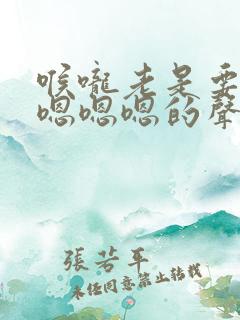 喉嚨老是要
嗯嗯嗯的聲
張若平
未經同意禁止轉載